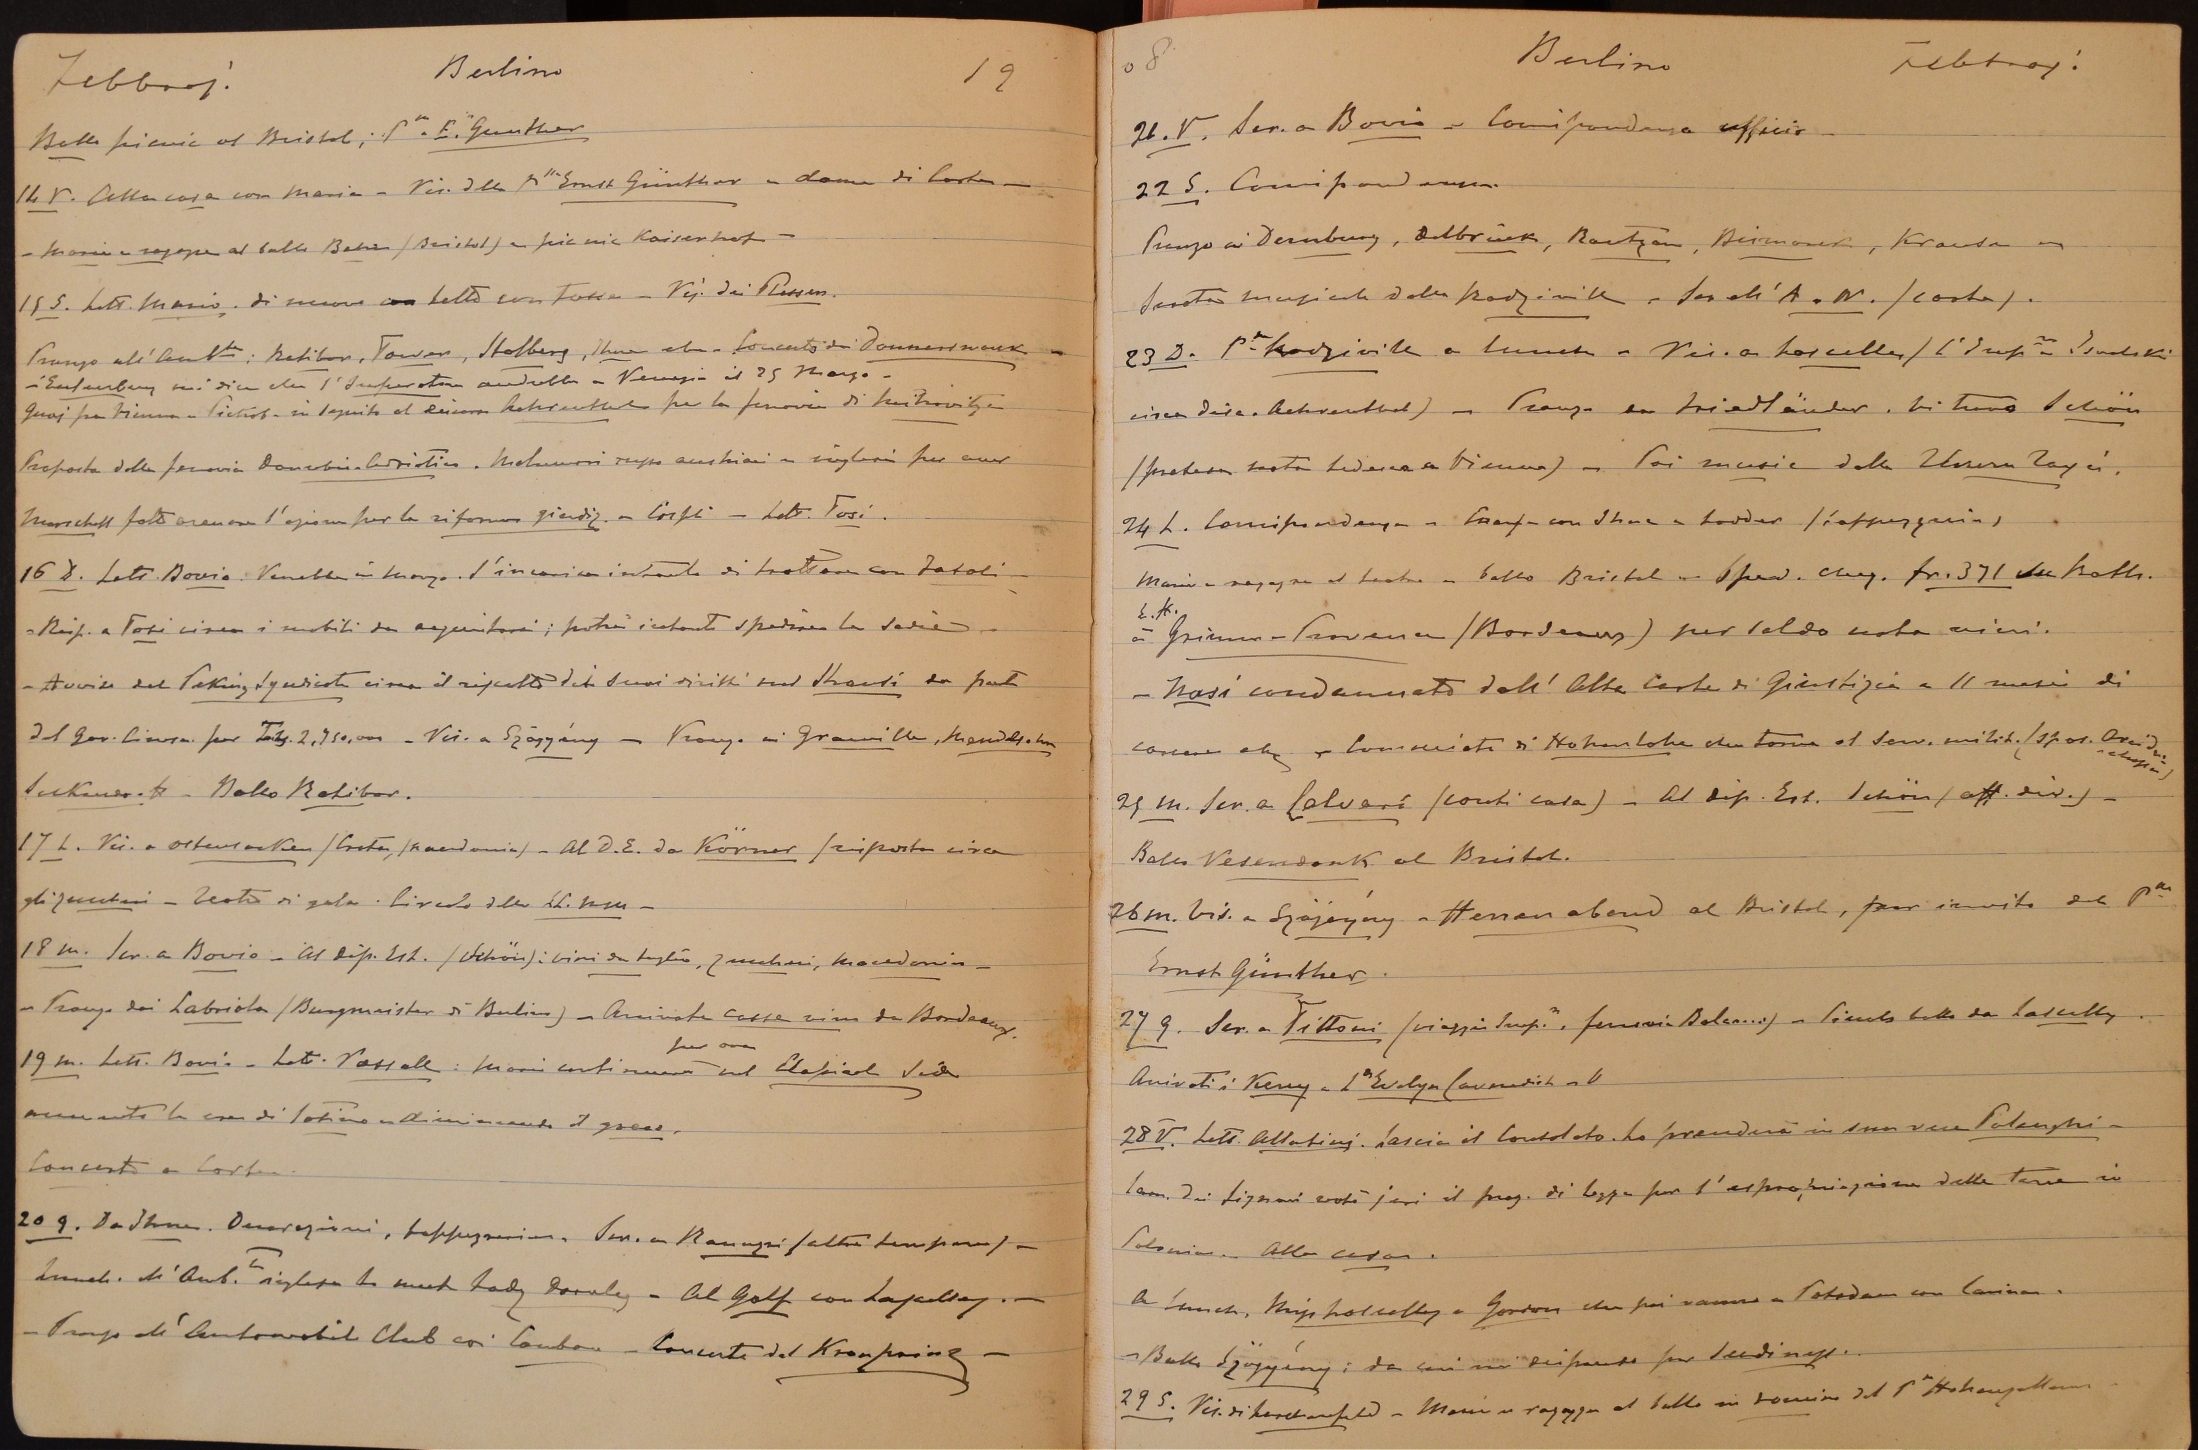 Febbraj. Berlino 19
Ballo picnic al Bristol; Pssa E. Gunther
14 V. Alla casa con Maria - Vis. della Pssa Ernst Günther e dame di Corte -
- Maria e ragazze al ballo Behr (Bristol) e picnic Kaiserhof -
15 S. Lett. Mario. di nuovo a letto con tosse - Vis. dei Plessen.
Pranzo all'Amb.ta: Ratibor, Tower, Stolberg, Ihne etc. Concerto dai Donnersmarck -
- Eulenburg mi dice che l'Imperatore andrebbe a Venezia il 25 Marzo -
per Vienna e Pietrob. in seguito al discorso Aehrenthal per la ferrovia di Mitrovitza
Proposta della ferrovia Danubio-Adriatico. Malumori russo austriaci e inglesi per aver
Marschall fatto arenare l'azione per la riforma giudiz. a Costpli - Lett. Tosi.
16 D. Lett. Bovio. Verrebbe in Marzo. L'incarico intanto di trattare con
- Risp. a Tosi circa i mobili da acquistarsi; potrà intanto spedire le sedie -
- Avviso del Peking Syndicate circa il riscatto dei suoi diritti nel Shansi da parte
del Gov. Cinese per 2,750,000 - Vis. a Szögyény - Pranzo ai Granville, Mendelsohn
- Ballo Ratibor.
17 L. Vis. a Ostensacken (Creta, Macedonia) - Al D.E. da Körner (risposta circa
gli zuccheri - Teatro di gala. Circolo delle LL. MM -
18 M. Scr. a Bovio - Al Dip. Est. (Schön): vini da taglio, zuccheri, Macedonia -
- Pranzo dai Labriola (Burgmeister di Berlino) - Arrivate casse vino da Bordeaux.
19 M. Lett. Bovio - Lett. Vassalle: Mario continuerà per ora nel Classical Side
aumentate le ore di latino e diminuendo il greco.
Concerto a Corte.
20 G. Da Ihne. Decorazioni, tappezzerie. Scr. a (altro tempone) -
Lunch. all'Amb.ta inglese to meet Lady - Al Golf con Lascelles. -
- Pranzo all'Automobil Club coi Cambon - Concerto del Kronprinz -
08 Berlino Febbraj.
21. V. Scr. a Bovio - Corrispondenza ufficio -
22 S. Corrispondenza.
Pranzo ai Dernburg, Delbrück, Rantzau, Bismarck, Krause e
Serata musicale dalla Radziwill - Scr. all'A. N. (carta).
23 D. Pssa Radziwill a lunch - Vis. a Lascelles (
circa disc. Aehrenthal) - Pranzo da Friedländer. Vi trovo Schön
(pretesa nota tedesca a Vienna) - Poi music dalla
24 L. Corrispondenza - con Ihne e (tappezzeria)
Maria e ragazze al teatro e ballo Bristol - Sped. cheq. fr. 371
E. H.
a Grimm - Provence (Bordeaux) per saldo nota vini.
- Nasi condannato dall'Alta Corte di Giustizia a 11 mesi di
carcere etc - Commiato di Hohenlohe che torna al serv. milit. (spos. Arciduchessa)
25 M. Scr. a Calvari (conti casa) - Al dip. Est. Schön (aff. div.) -
Ballo Vesendonk al Bristol.
26 M. Vis. a Szögyény - Herrenabend al Bristol, per invito del Pe
Ernst Günther.
27 G. Scr. a Tittoni (viaggio Imp.re, ferrovie Balcan.) - Piccolo ballo da Lascelles.
Arrivati i Kerry e Ly Evelyn Cavendish - V
28 V. Lett. Allatini. Lascia il Consolato. Lo prenderà in sua vece
Cam. dei Signori votò jeri il prog. di legge per l'espropriazione delle terre in
Polonia. - Alla casa.
A lunch, Miss Lascelles e Gordon che poi vanno a Potsdam con Carina.
- Ballo Szögyény; da cui mi dispenso per
29 S. Vis. di Lerchenfeld - Maria e ragazze al ballo in domino del Pe Hohenzollern